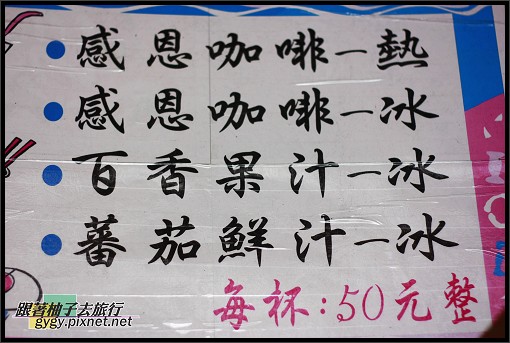 感恩咖啡－熱
感恩咖啡－冰
百香果汁－冰
蕃茄鮮汁－冰
每杯:50元整
跟著柚子去旅行
gygy.pixnet.net